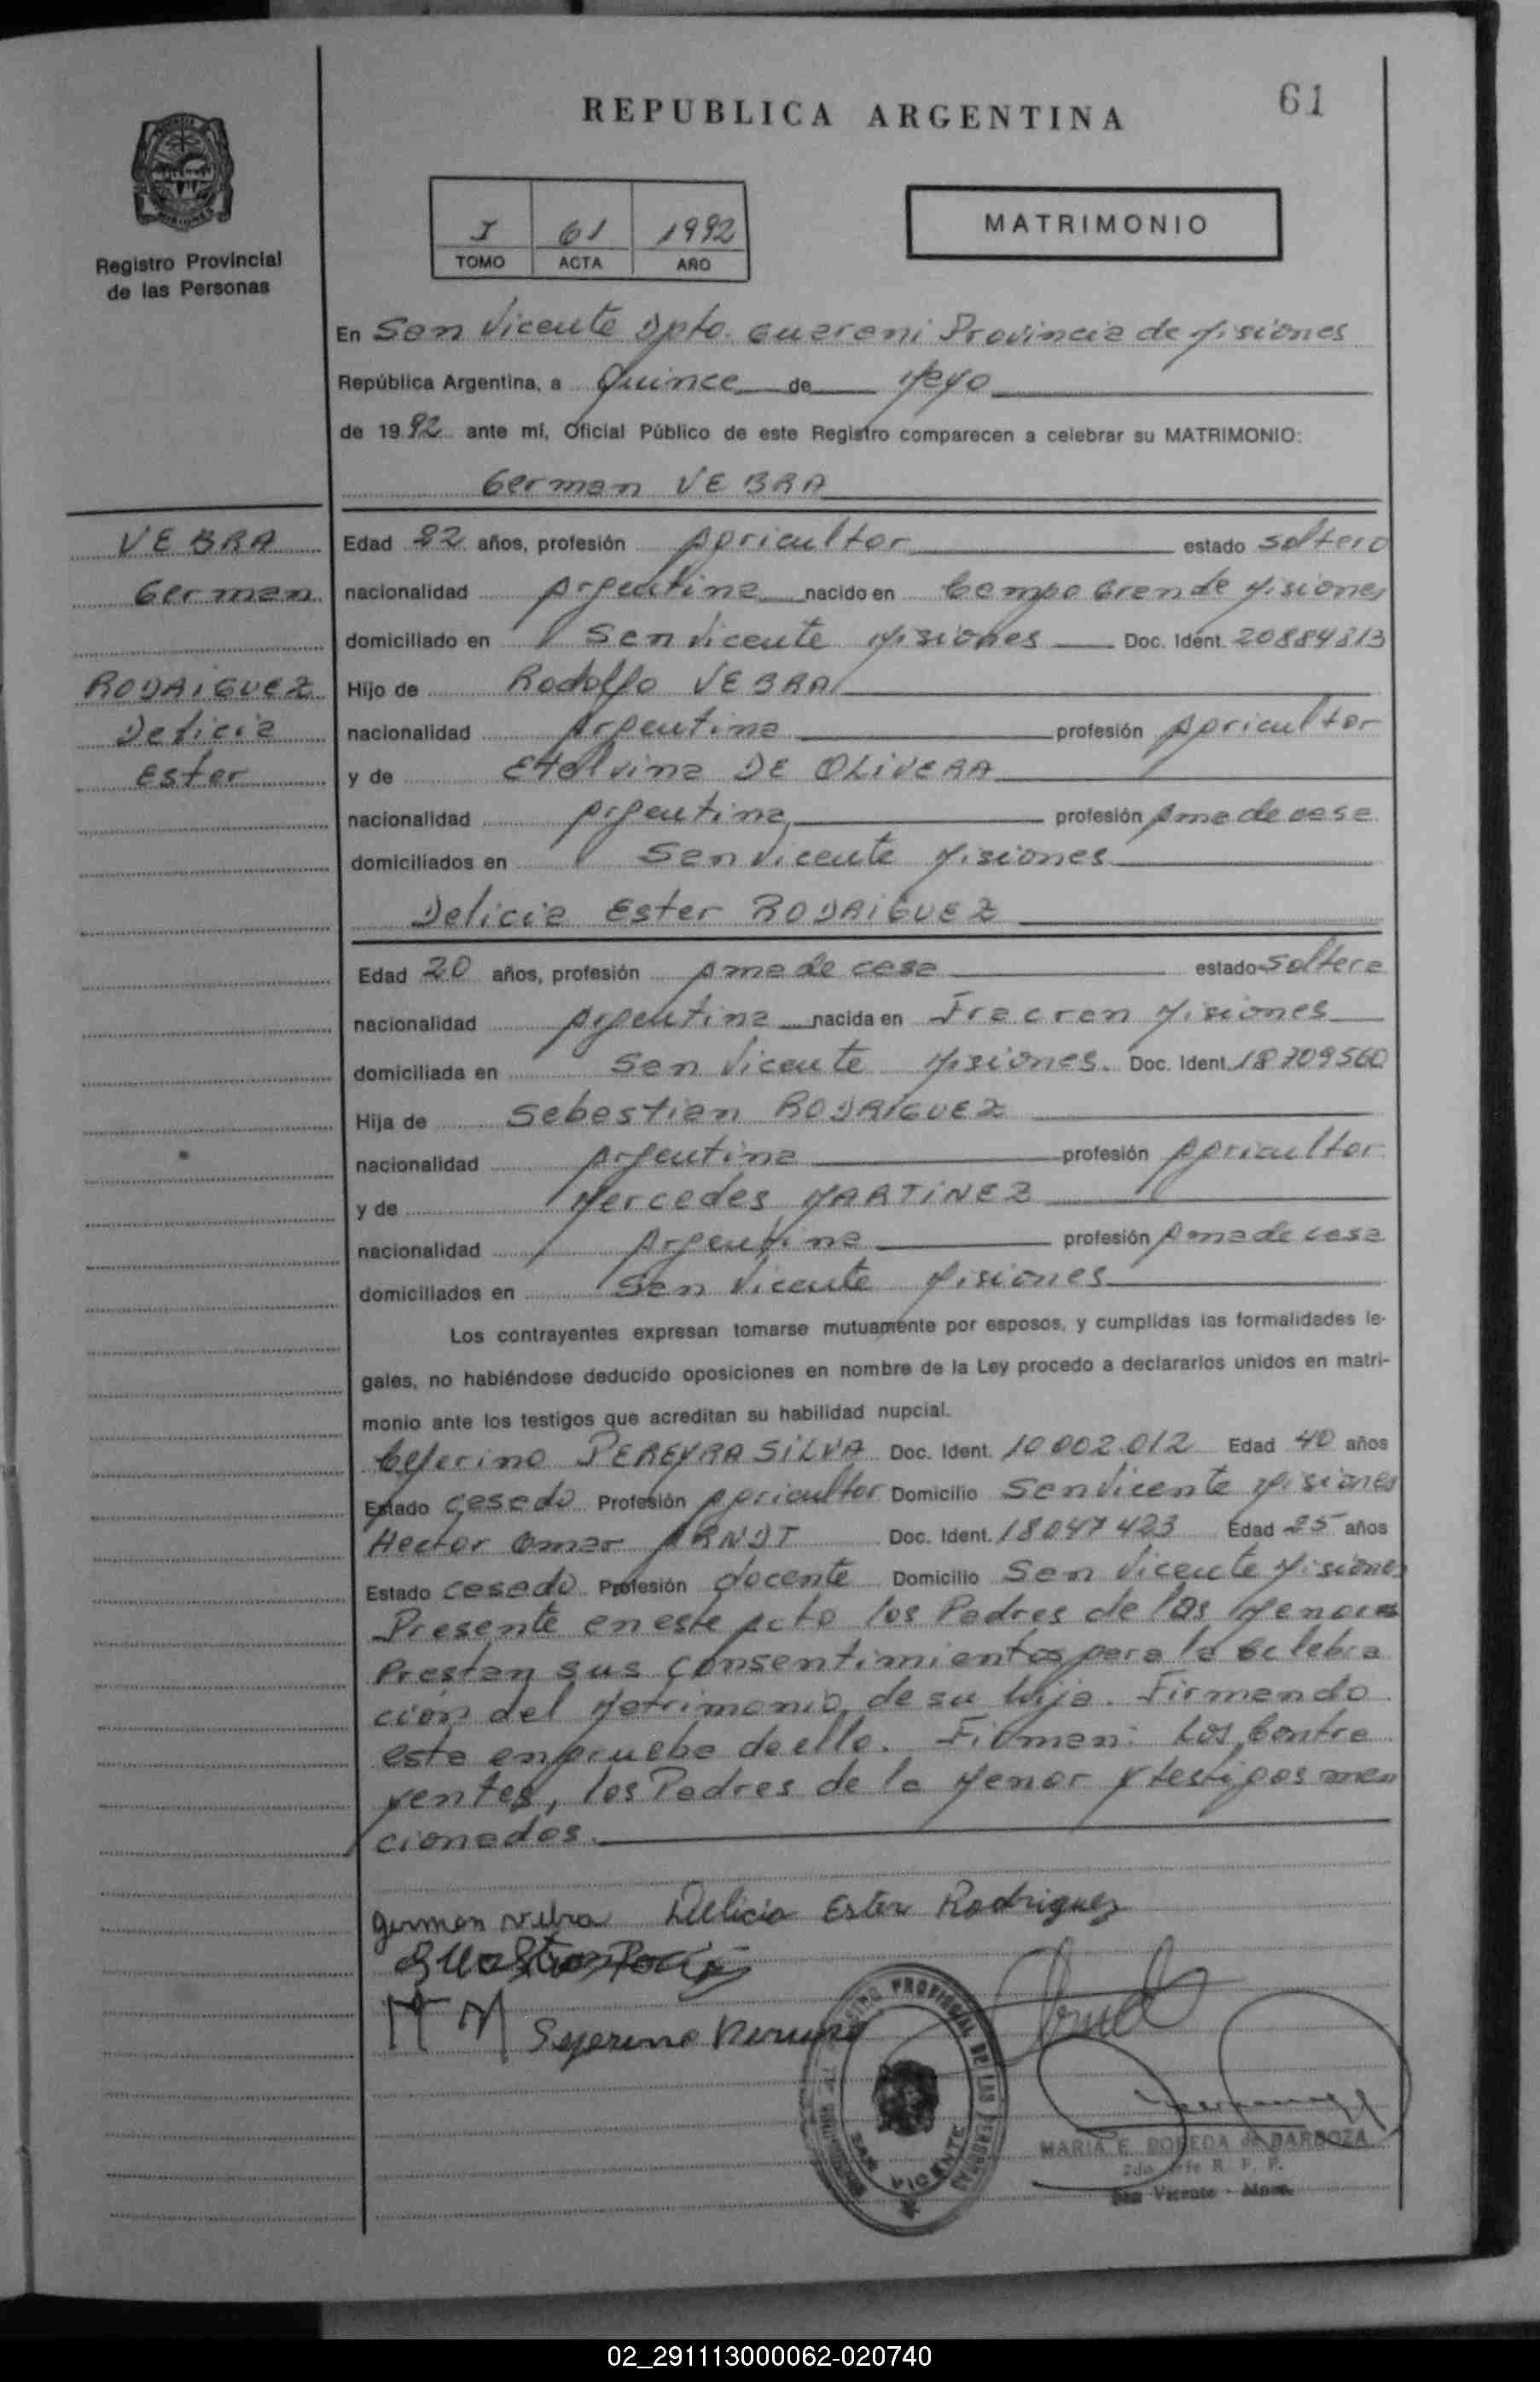 61
REPUBLICA ARGENTINA
MISIONES
Registro Provincial
de las Personas
I 61 1992
TOMO ACTA AÑO
MATRIMONIO
En San Vicente Dpto. Guarani Provincia de Misiones
República Argentina, a Quince de Mayo
de 1992 ante mí, Oficial Público de este Registro comparecen a celebrar su MATRIMONIO:
German VEBRA
VEBRA
German
RODRIGUEZ
Delicia
Ester
Edad 22 años, profesión Agricultor estado soltero
nacionalidad Argentina nacido en Campo Grande Misiones
domiciliado en San Vicente Misiones Doc. Ident. 20884813
Hijo de Rodolfo VEBRA
nacionalidad Argentina profesión Agricultor
y de Etelvina DE OLIVERA
nacionalidad Argentina profesión Ama de casa
domiciliados en San Vicente Misiones
Delicia Ester RODRIGUEZ
Edad 20 años, profesión Ama de casa estado soltera
nacionalidad Argentina nacida en Fracran Misiones
domiciliada en San Vicente Misiones. Doc. Ident. 18709560
Hija de Sebastian RODRIGUEZ
nacionalidad Argentina profesión Agricultor
y de Mercedes MARTINEZ
nacionalidad Argentina profesión Ama de casa
domiciliados en San Vicente Misiones
Los contrayentes expresan tomarse mutuamente por esposos, y cumplidas las formalidades le-
gales, no habiéndose deducido oposiciones en nombre de la Ley procedo a declararlos unidos en matri-
monio ante los testigos que acreditan su habilidad nupcial.
Ceferino PEREYRA SILVA Doc. Ident. 10002.012 Edad 40 años
Estado casado Profesión Agricultor Domicilio San Vicente Misiones
Hector Omar ARNDT Doc. Ident. 18047423 Edad 25 años
Estado casado Profesión docente Domicilio San Vicente Misiones
Presente en este Acto los Padres de las Menores
Prestan sus consentimientos para la celebra
ción del Matrimonio de su hija. Firmando
este en prueba de ello. Firman: Los Contra
yentes, los Padres de la Menor y testigos men
cionados.
German Vebra Delicia Ester Rodriguez
M M
PROVINCIAL DE LAS PERSONAS
SAN VICENTE
MARIA E. BOVEDA de BARBOZA
2do Jefe R. P. P.
San Vicente - Mnes.
02_291113000062-020740